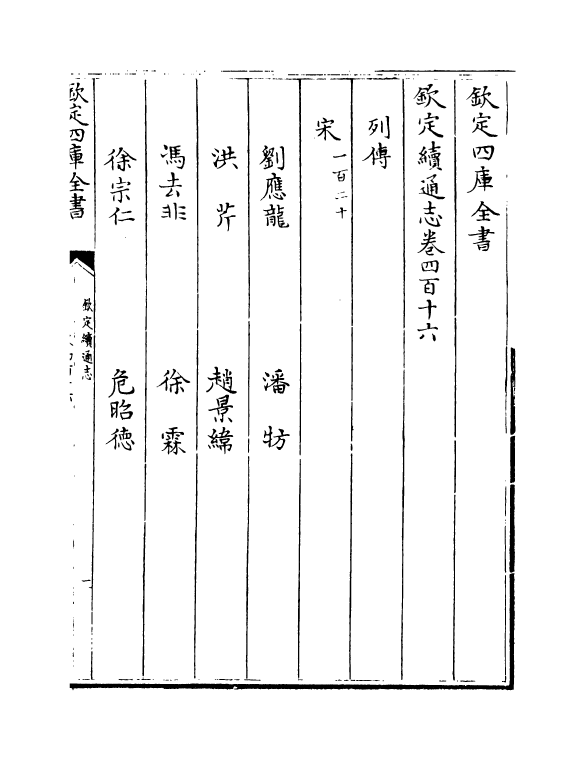 欽定四庫全書
欽定續通志卷四百十六
列傳
宋一百二十
劉應龍　潘牥
洪芹　趙景緯
馮去非　徐霖
徐宗仁　危昭德
欽定四庫全書
欽定續通志
一